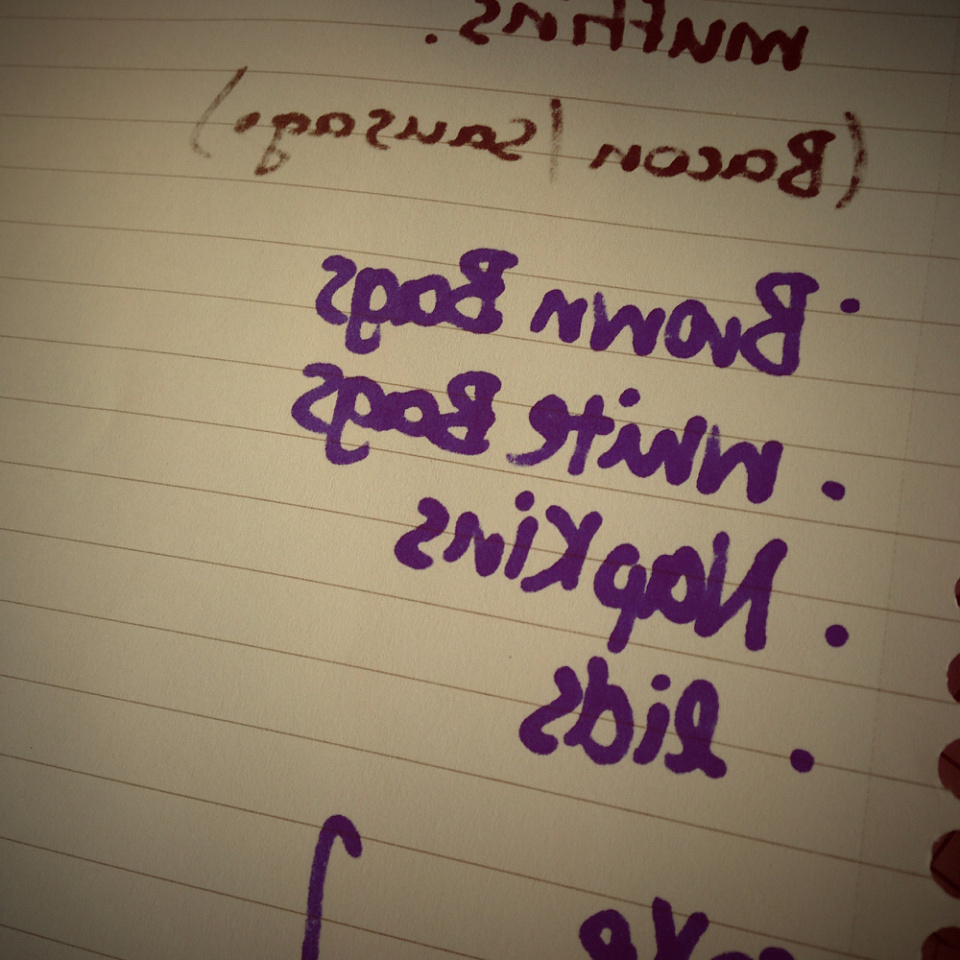 muffins.
(Bacon / Sausage)
• Brown Bags
• White Bags
• Napkins
• lids